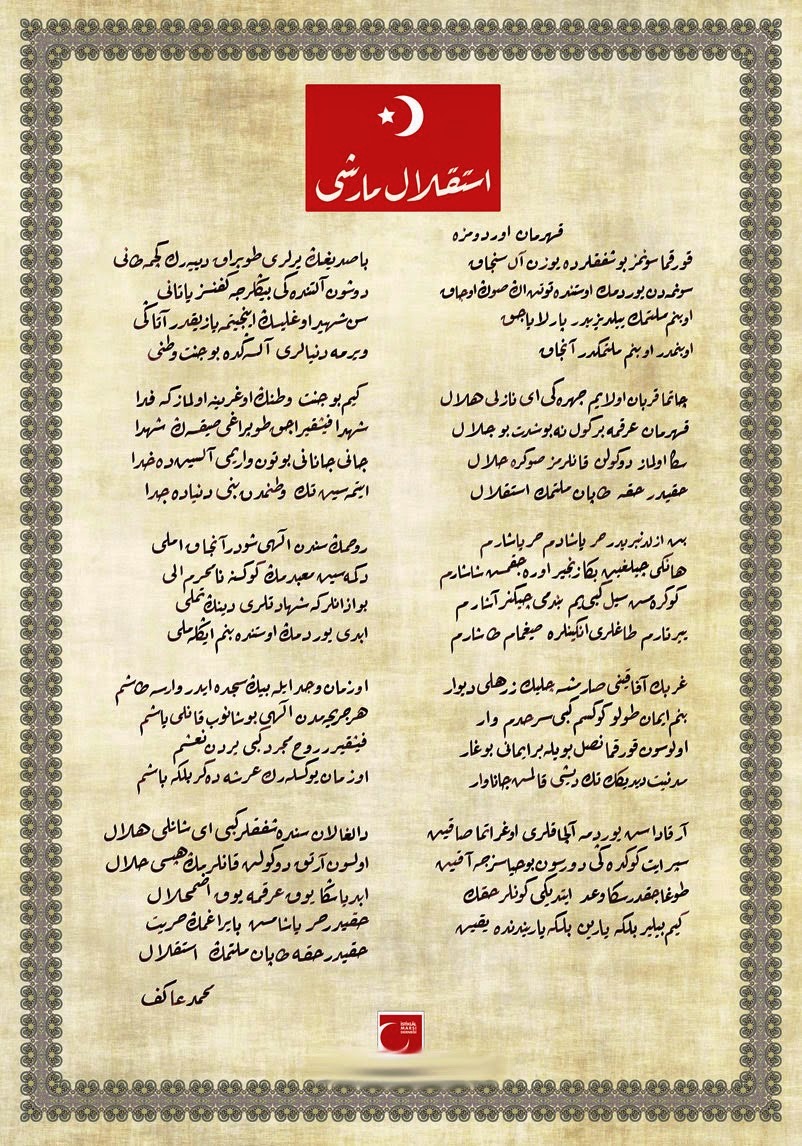 استقلال مارشى
قهرمان اوردومزه
قورقما سونمز بو شفقلرده يوزن آل سنجاق
سونمه‌دن يوردمڭ اوستنده توتن اڭ صوڭ اوجاق
او بنم ملتمڭ ييلديزيدر پارلاياجق
او بنمدر او بنم ملتمڭدر آنجاق
چاتما قربان اولايم چهره‌ڭى اى نازلى هلال
قهرمان عرقمه بر كول نه بو شدت بو جلال
سڭا اولماز دوكولن قانلرمز صوڭره حلال
حقيدر حقه طاپان ملتمڭ استقلال
بن ازلدنبريدر حر ياشادم حر ياشارم
هانكى چيلغين بڭا زنجير اوره‌جقمش شاشارم
كوكره‌مش سيل كبى‌يم بندمى چيڭنر آشارم
ييرتارم طاغلرى انكينلره صيغمام طاشارم
غربڭ آفاقنى صارمشسه چليك زرهلى ديوار
بنم ايمان طولو كوكسم كبى سرحدم وار
اولوسون قورقما نصل بويله بر ايمانى بوغار
مدنيت ديديكڭ تك ديشى قالمش جاناوار
آرقاداش يوردمه آلچاقلرى اوغراتما صاقين
سپر ايت كوكده‌ڭى دورسون بو حياسزجه آقين
طوغاجقدر سڭا وعد ايتديكى كونلر حقڭ
كيم بيلير بلكه يارين بلكه ياريندنده يقين
باصديغڭ يرلرى طوپراق دييه‌رك كچمه طانى
دوشون آلتنده‌كى بيڭلرجه كفنسز ياتانى
سن شهيد اوغليسڭ اينجيتمه يازيقدر آتاڭى
ويرمه دنيالرى آلسه‌ڭده بو جنت وطنى
كيم بو جنت وطنڭ اوغرينه اولماز كه فدا
شهدا فيشقيراجق طوپراغى صيقسه‌ڭ شهدا
جانى جانانى بوتون واريمى آلسين ده خدا
ايتمه‌سين تك وطنمدن بنى دنياده جدا
روحمڭ سندن الهى شودر آنجاق املى
دكمه‌سين معبدمڭ كوكسنه نامحرم الى
بو اذانلر كه شهادتلرى دينڭ تملى
ابدى يوردمڭ اوستنده بنم ايڭله‌ملى
او زمان وجد ايله بيڭ سجده ايدر وارسه طاشم
هر جريحه‌مدن الهى بوشانوب قانلى ياشم
فيشقيرر روح مجرد كبى يردن نعشم
او زمان يوكسله‌رك عرشه دكر بلكه باشم
دالغالان سنده شفقلر كبى اى شانلى هلال
اولسون آرتق دوكولن قانلريمڭ هپسى حلال
ابديا سڭا يوق عرقمه يوق اضمحلال
حقيدر حر ياشامش بايراغمڭ حريت
حقيدر حقه طاپان ملتمڭ استقلال
محمد عاكف
İSTİKLÂL
MARŞI
DERNEĞİ